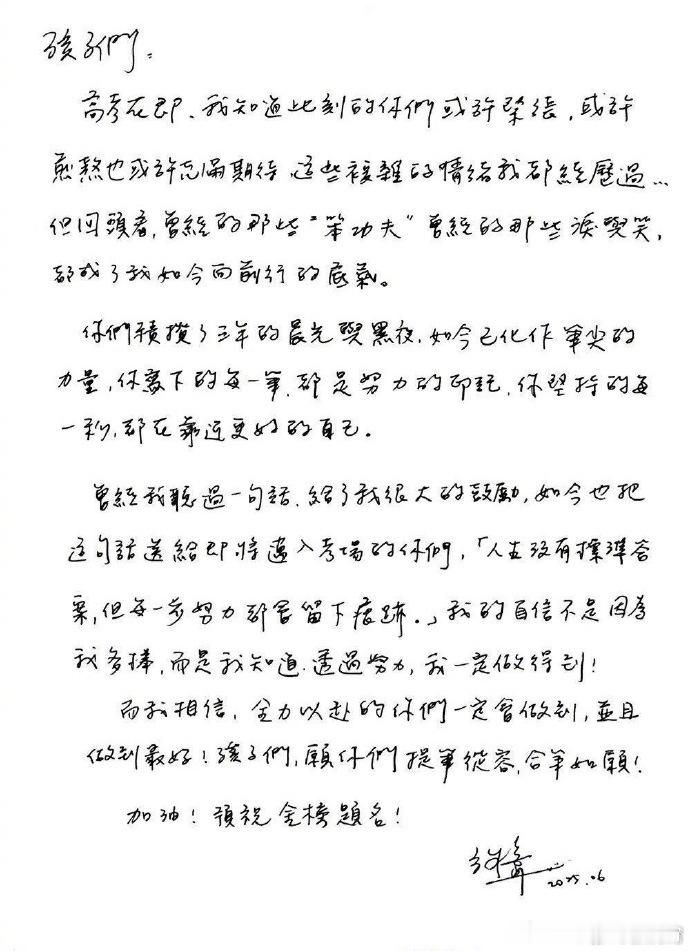 孩子們：
高考在即、我知道此刻的你們或許緊張，或許
煎熬也或許充滿期待、這些複雜的情緒我都經歷過…
但回頭看，曾經的那些“笨功夫”曾經的那些淚與笑，
都成了我如今向前行的底氣。
你們積攢了三年的晨光與黑夜，如今已化作筆尖的
力量，你寫下的每一筆，都是努力的印記，你堅持的每
一秒，都在靠近更好的自己。
曾經我聽過一句話，給了我很大的鼓勵，如今也把
這句話送給即將邁入考場的你們，「人生沒有標準答
案，但每一步努力都會留下痕跡．」我的自信不是因為
我多棒，而是我知道．透過努力，我一定做得到！
而我相信，全力以赴的你們一定會做到，並且
做到最好！孩子們，願你們提筆從容，合筆如願！
加油！預祝金榜題名！
2025.06